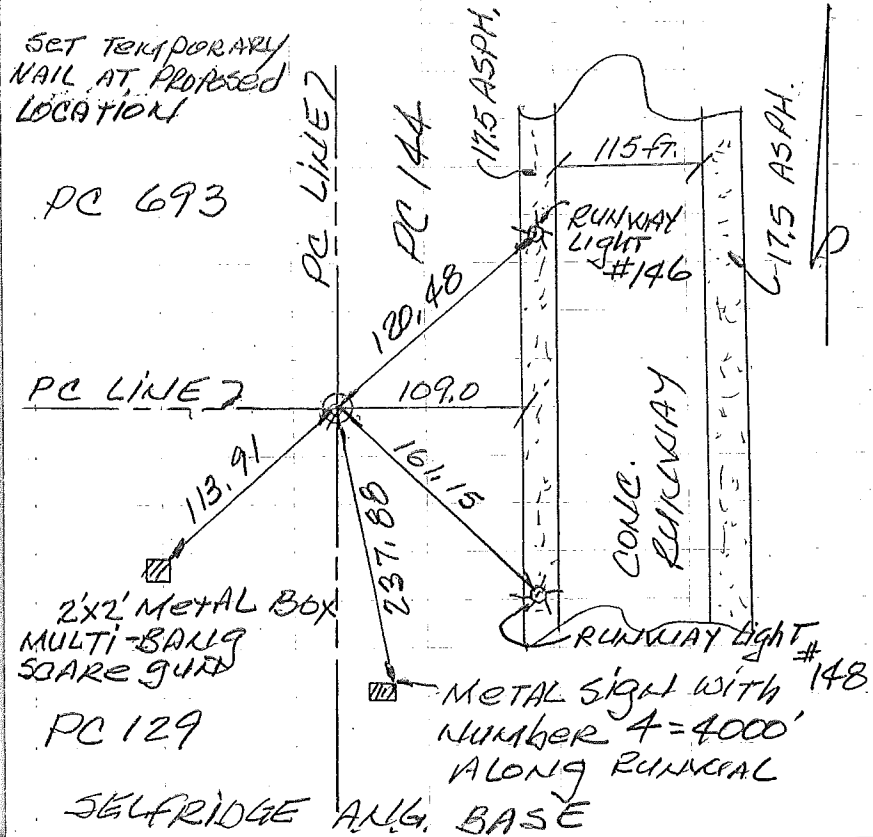 SET TEMPORARY
NAIL AT PROPOSED
LOCATION
PC 693
PC LINE
PC 144
17.5 ASPH.
115 ft.
17.5 ASPH.
RUNWAY
LIGHT
#146
120.48
PC LINE
109.0
113.91
161.15
237.88
CONC.
RUNWAY
2'X2' METAL BOX
MULTI-BANG
SCARE GUN
RUNWAY LIGHT
#148
METAL SIGN WITH
NUMBER 4=4000'
ALONG RUNWAY
PC 129
SELFRIDGE A.N.G. BASE